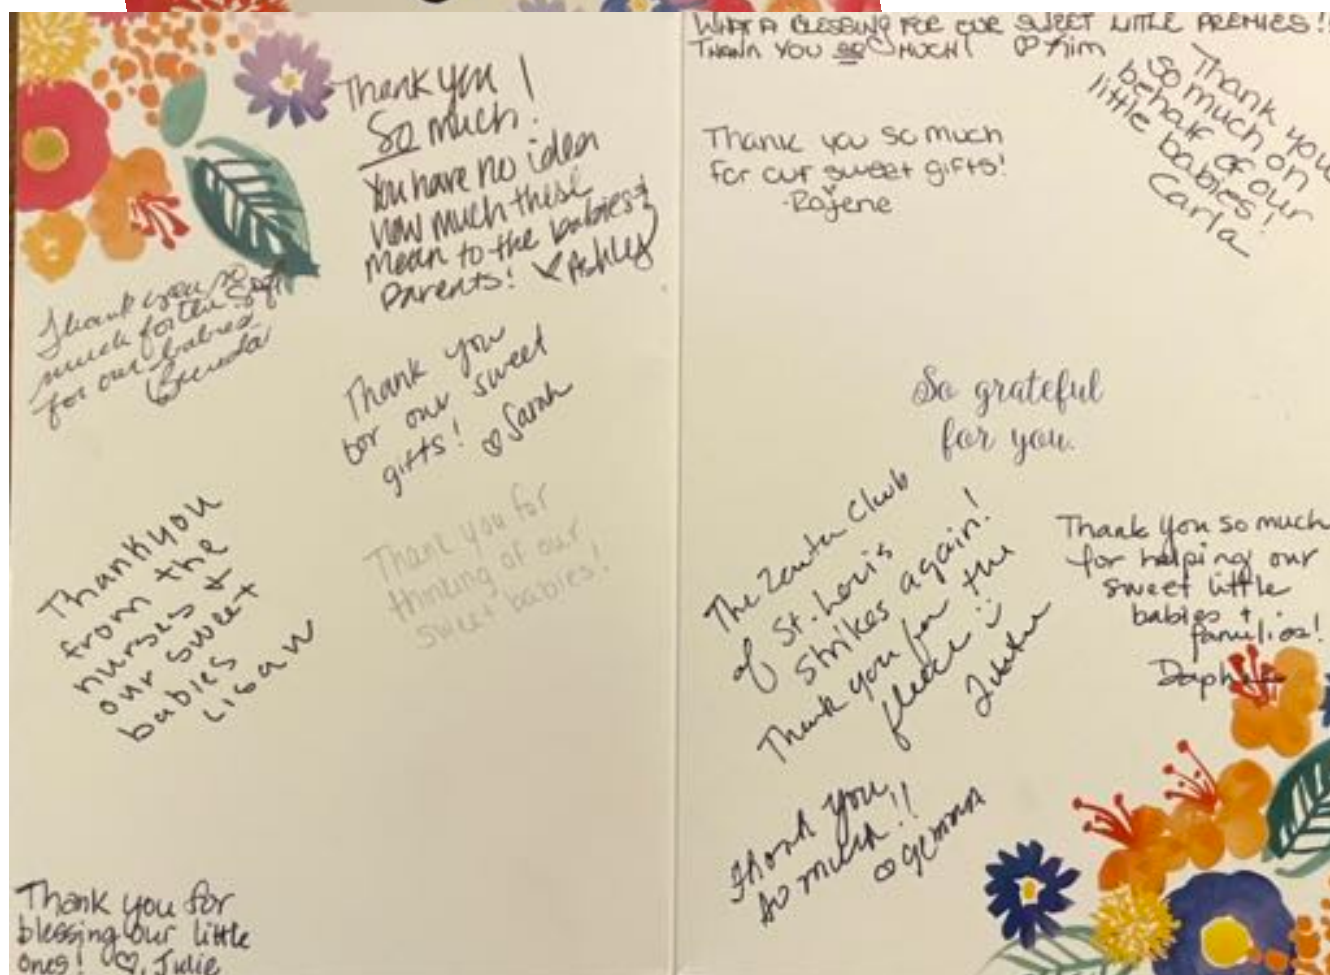 Thank you
So much!
You have no idea
how much these
mean to the babies &
parents! Ashley
Thank you so
much for the gift
for our babies
Brenda
Thank you
for our sweet
gifts! Sarah
Thank you for
thinking of our
sweet babies!
Thankyou
from the
nurses &
our sweet
babies
Thank you for
blessing our little
ones! Julie
WHAT A BLESSING FOR OUR SWEET LITTLE PREMIES!!
THANK YOU SO MUCH! Kim
Thank you so much
for our sweet gifts!
Thank you
so much on
behalf of our
little babies!
Carla
So grateful
for you.
The Zonta Club
of St. Louis
strikes again!
Thank you for the
fleece :)
Thank you so much
for helping our
sweet little
babies +
families!
Thank you
so much!!
Gemma